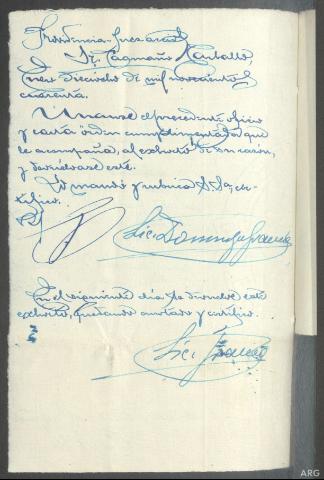 Providencia Juez accal
Sr. Caamaño Carballo.
Enero dieciocho de mil novecientos
cuarenta.
Unanse el precedente oficio
y carta orden cumplimentada que
le acompaña, al exhorto de su razón,
y devuélvase éste.
Lo mandó y rubrica S.Sª, cer-
tifico.
Lic. Domingo
En el siguiente día se devuelve este
exhorto, quedando anotado y certifico.
Lic.
ARG